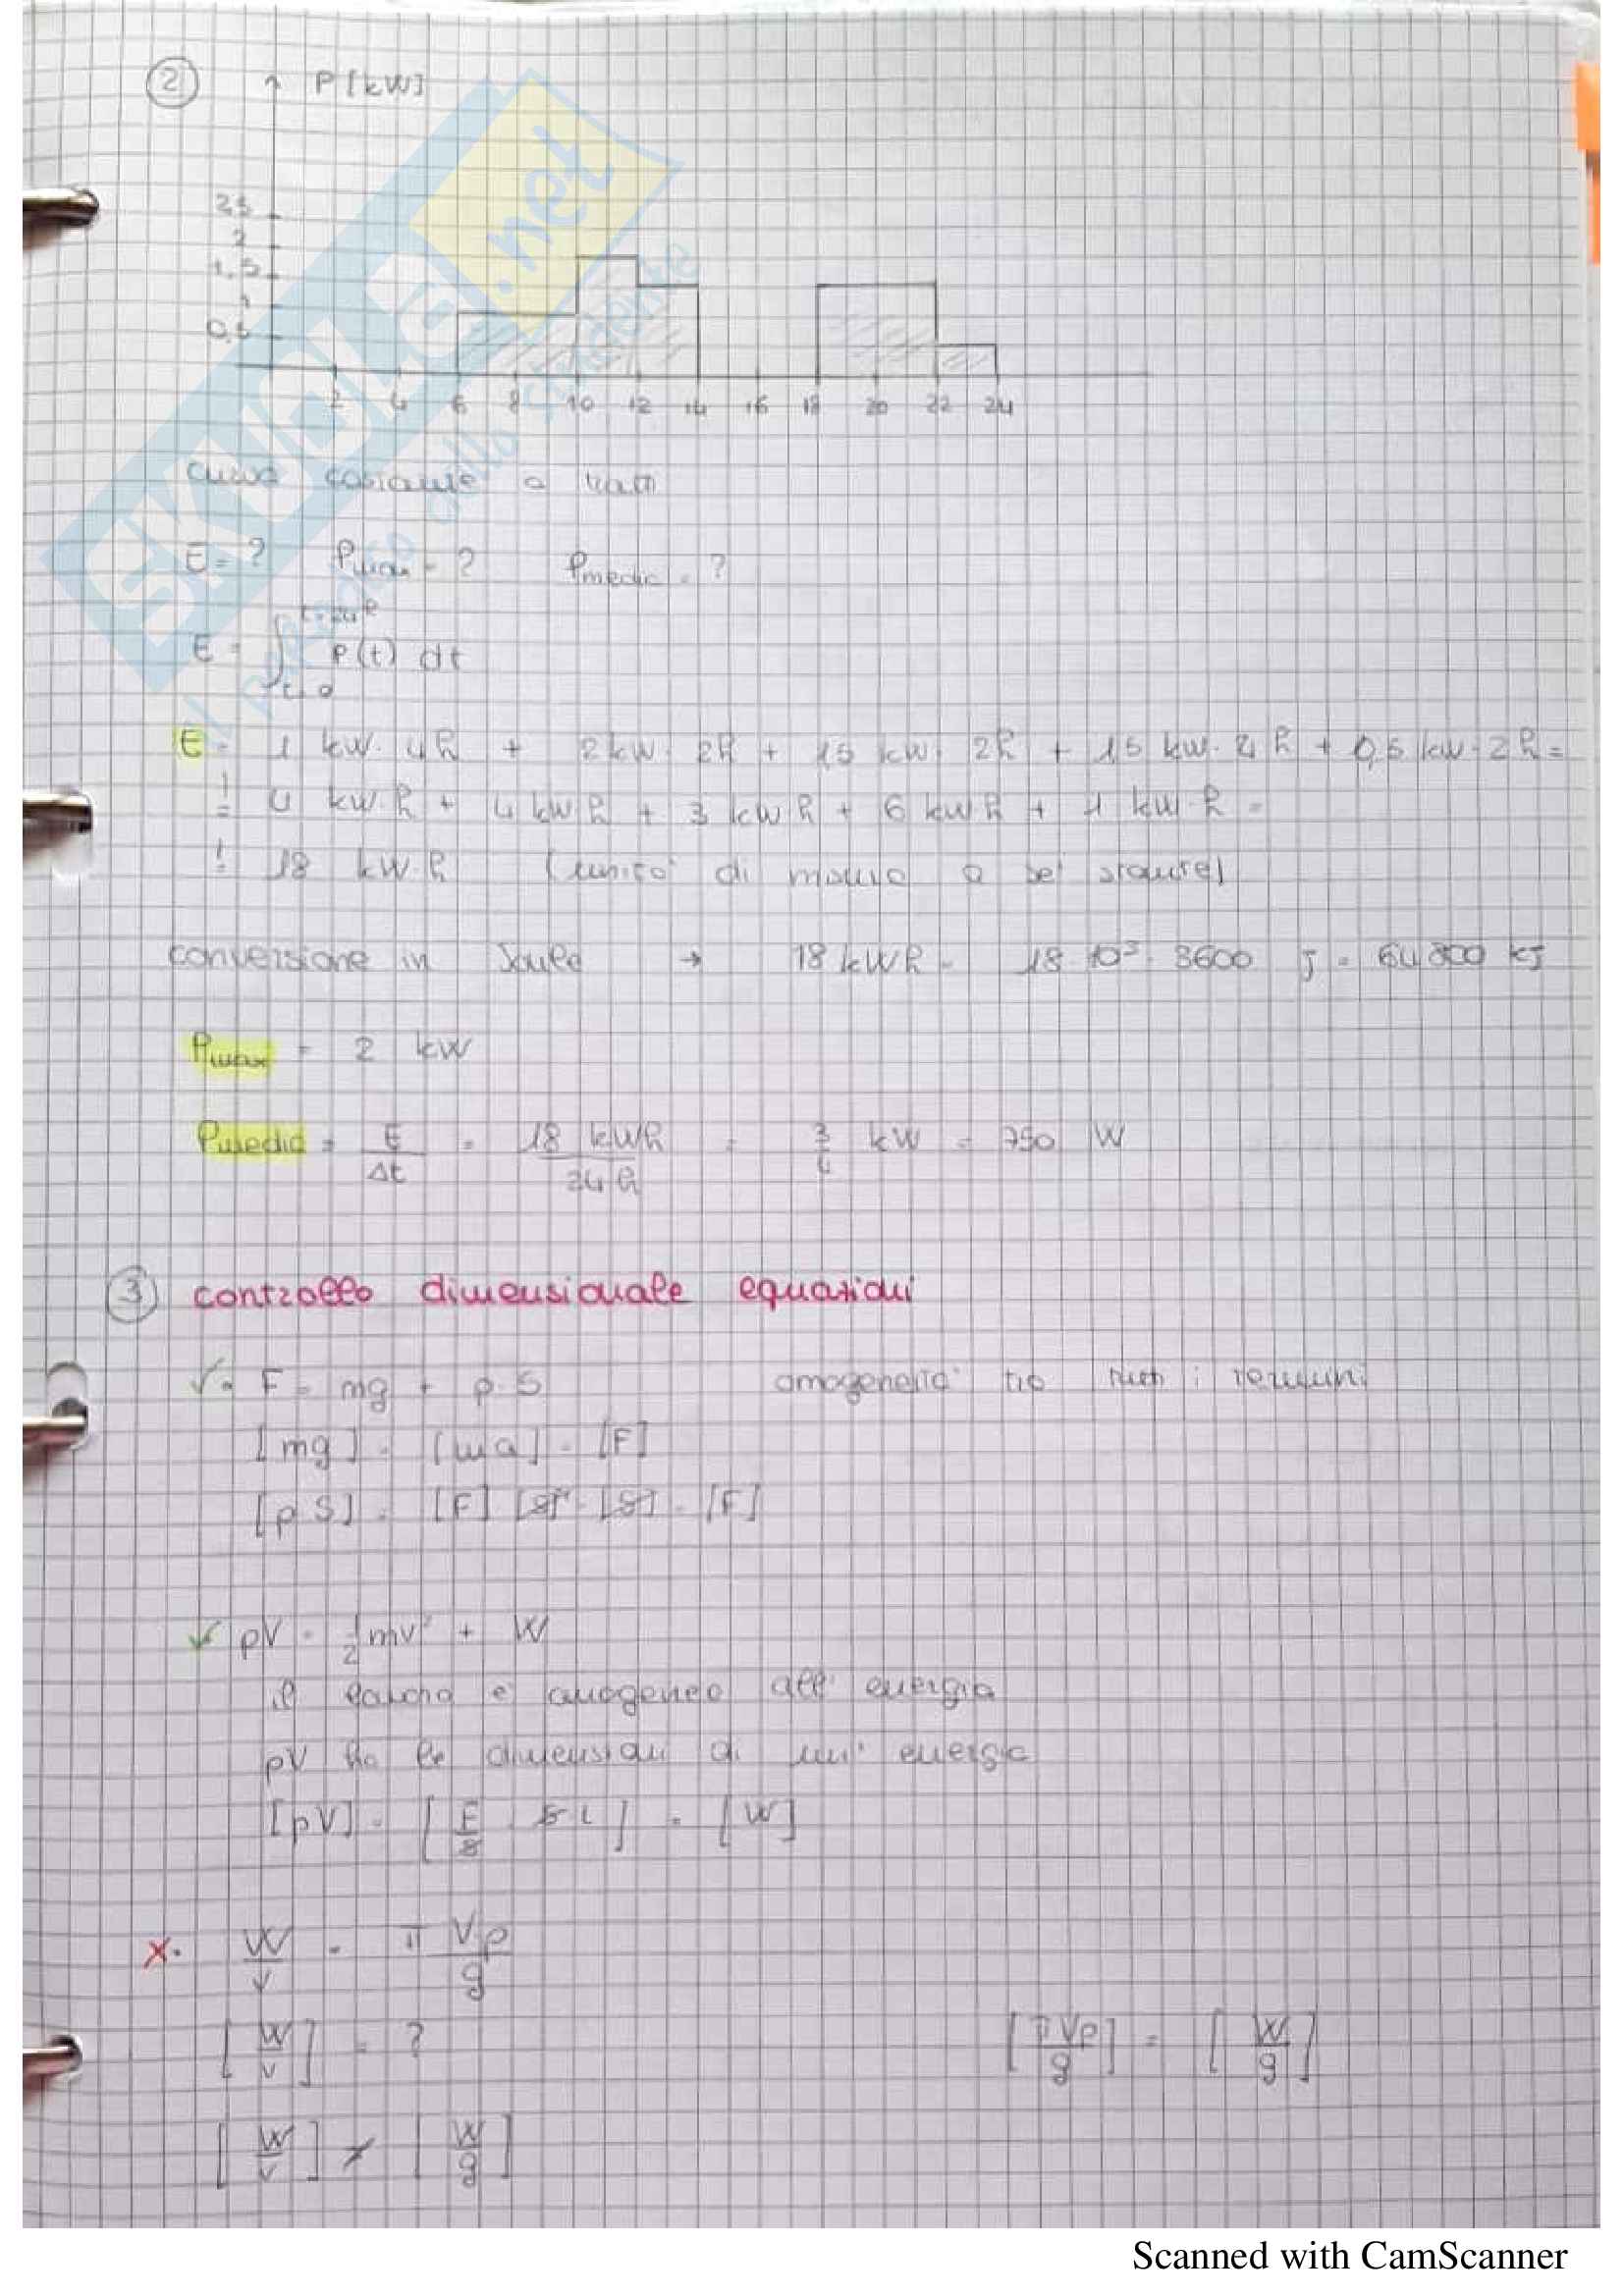 2 P [kW]
2,5
2
1,5
1
0,5
2 4 6 8 10 12 14 16 18 20 22 24
SKUOLA.net
il paradiso dello studente
curva costante a tratti
E = ? Pmax = ? Pmedia = ?
E = ∫ t=0 t=24h P(t) dt
E = 1 kW · 4h + 2 kW · 2h + 1,5 kW · 2h + 1,5 kW · 4h + 0,5 kW · 2h =
= 4 kW·h + 4 kW·h + 3 kW·h + 6 kW·h + 1 kW·h =
= 18 kW·h (unità di misura a sé stante)
conversione in Joule → 18 kWh = 18 · 10³ · 3600 J = 64 800 kJ
Pmax = 2 kW
Pmedia = E/Δt = 18 kWh/24 h = 3/4 kW = 750 W
3 controllo dimensionale equazioni
✓ • F = mg + p · S omogeneità tra tutti i termini
[mg] = [ma] = [F]
[p S] = [F] [S]⁻¹ [S] = [F]
✓ pV = 1/2 mv² + W
il lavoro è omogeneo all' energia
pV ha le dimensioni di un' energia
[pV] = [F/S · S · L] = [W]
x • W/v = π V·p/g
[W/v] = ? [π Vp/g] = [W/g]
[W/v] ≠ [W/g]
Scanned with CamScanner